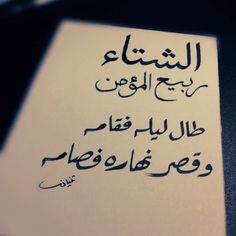 الشتاء
ربيع المؤمن
طال ليله فقامه
وقصر نهاره فصامه